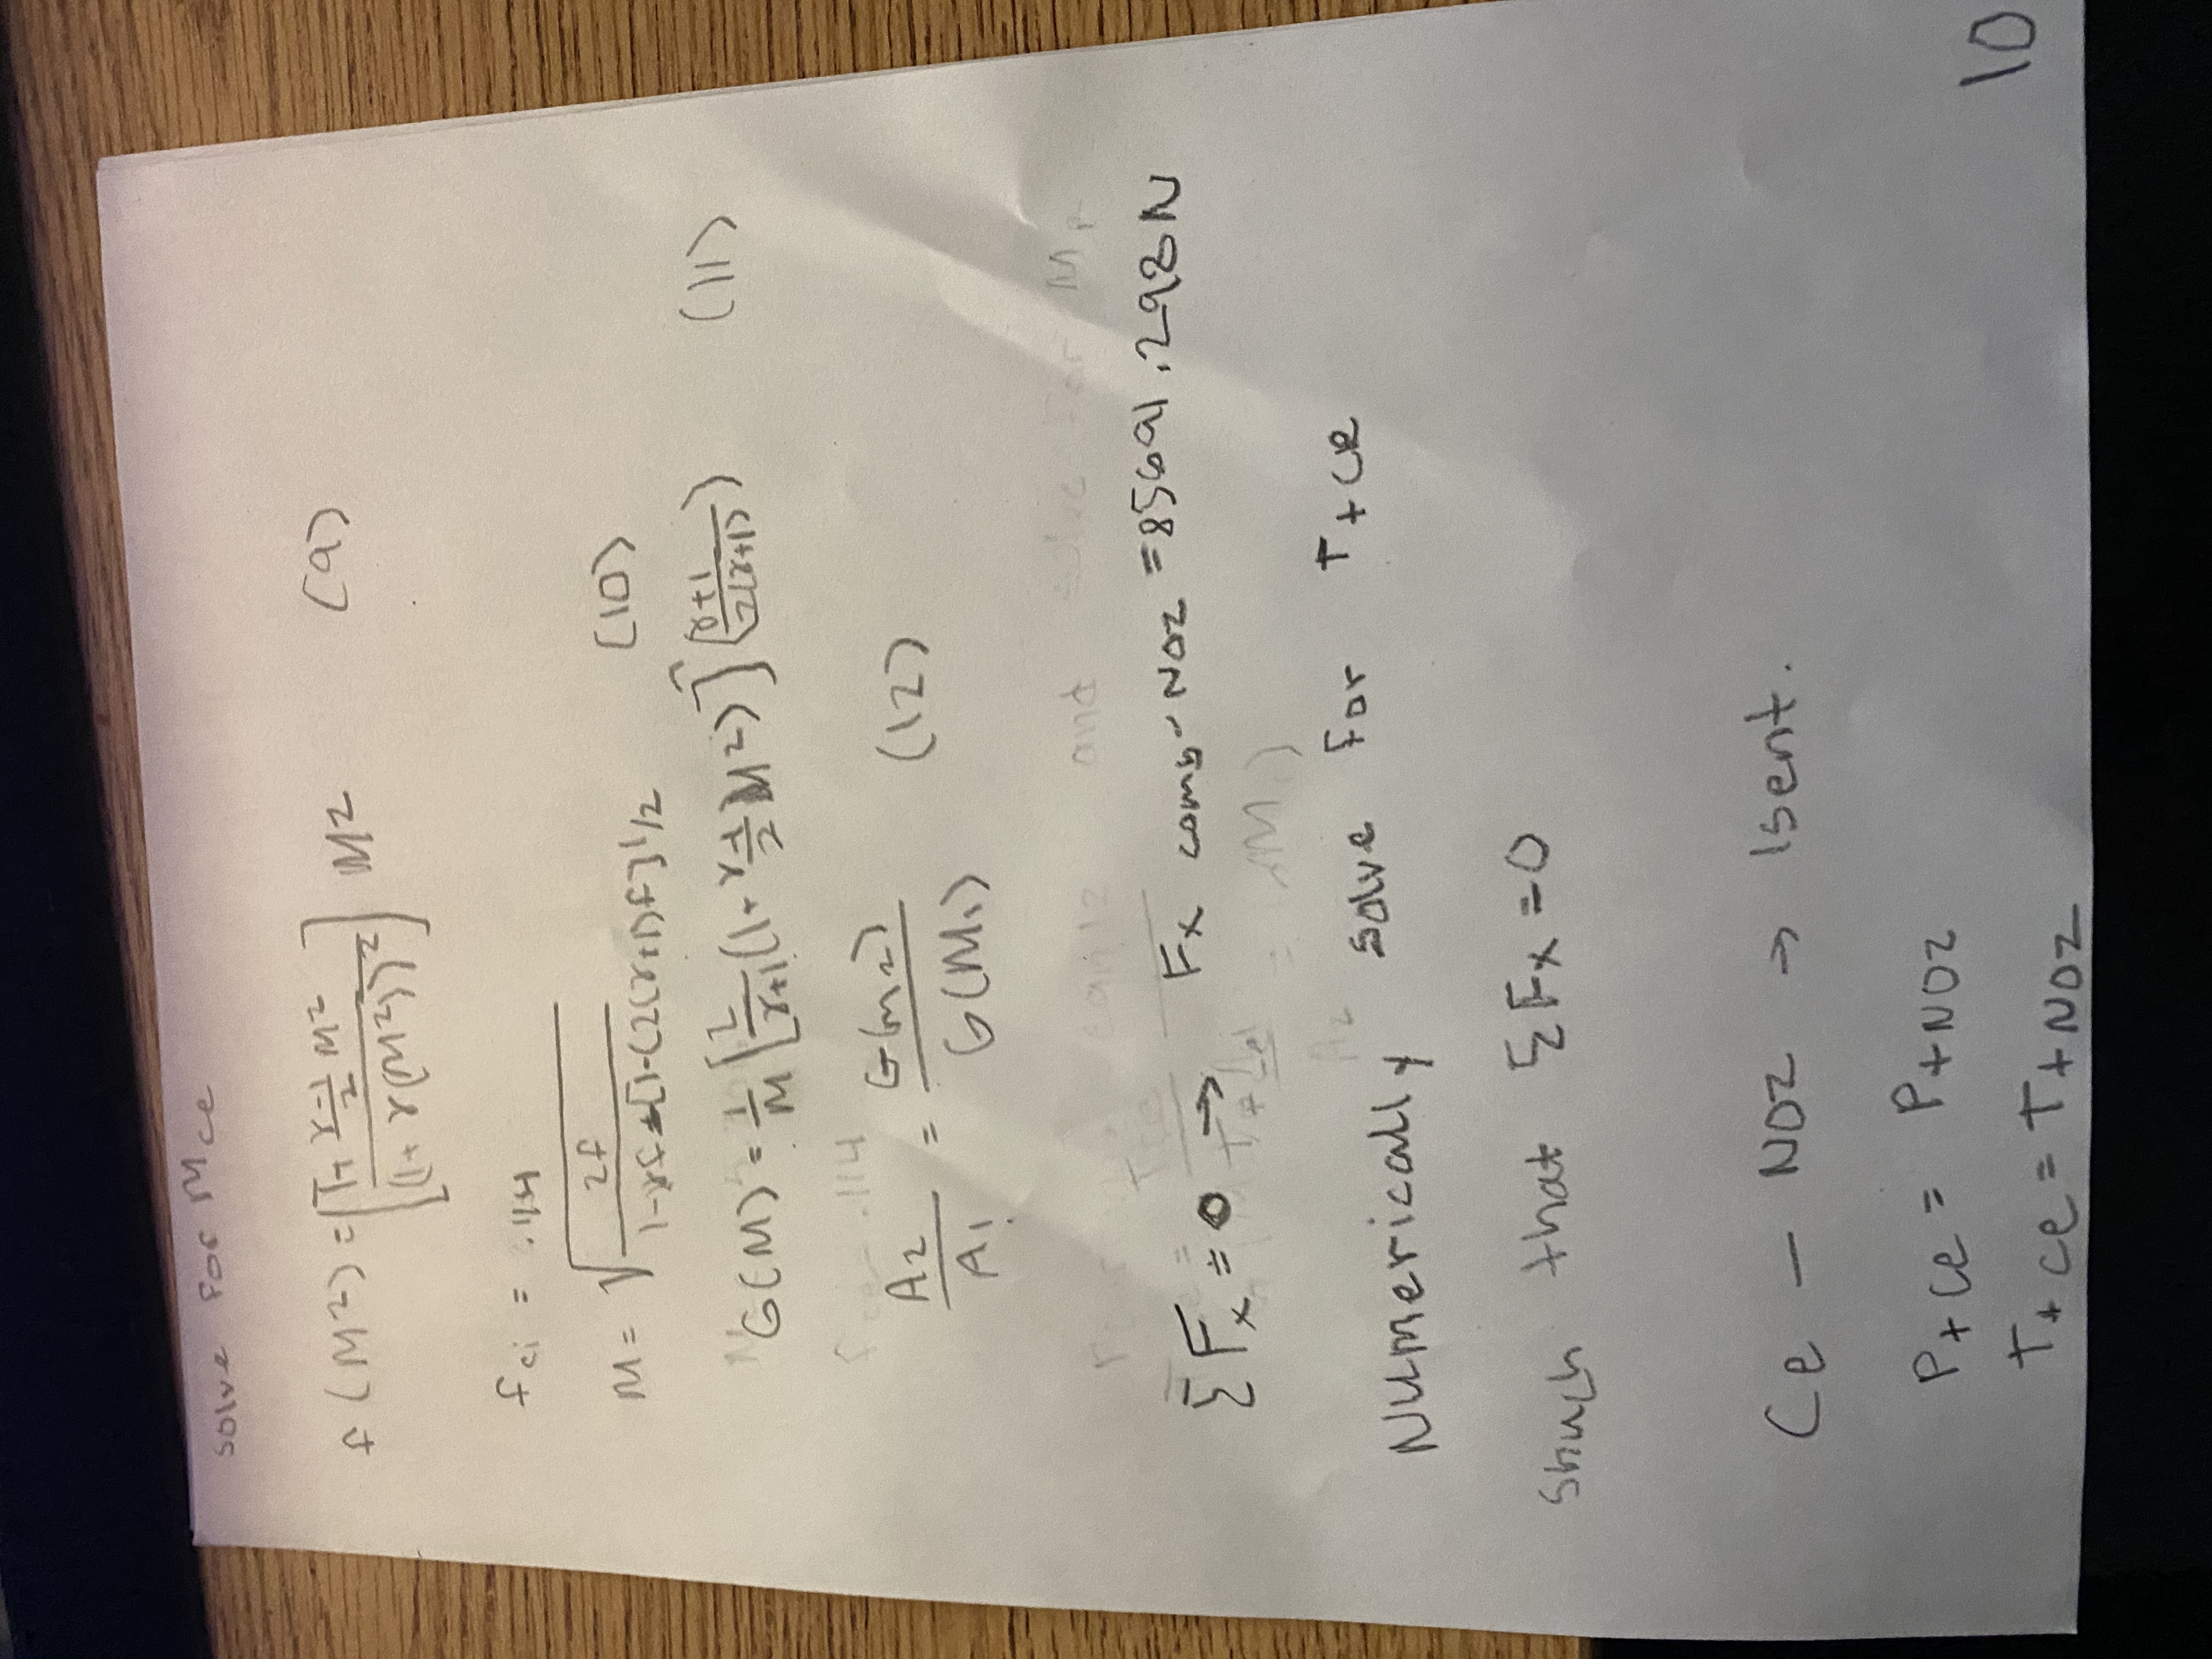 Solve for Mce
f(M²) = [(1+ γ-1/2 M²)/(1+ γ(M²))²] M² (9)
fci = .114
M = √(2f/(1-γf±[1-(2(γ+1)f]^1/2)) (10)
G(M) = 1/M [2/γ+1 (1+ γ-1/2 M²)]^(γ+1/2(γ+1)) (11)
A2/A1 = G(M2)/G(M1) (12)
ΣFx = 0 → Fx comb-NOZ = 85691.293N
Numerically solve for T+ce
Such that ΣFx = 0
Ce — NOZ → Isent.
P+ce = P+NOZ
T+ce = T+NOZ
10